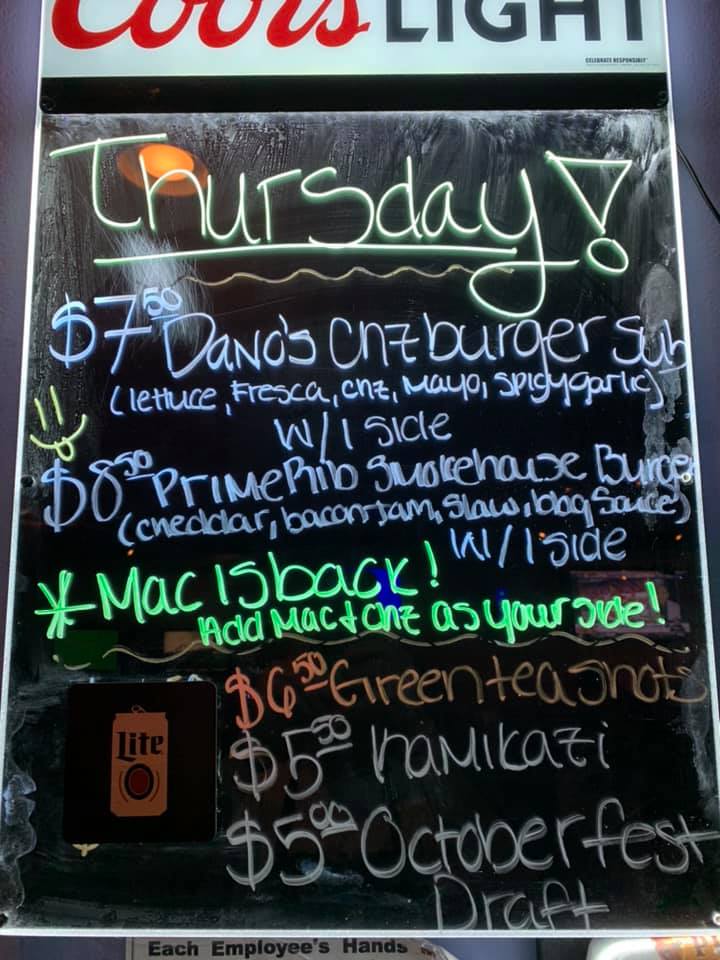 Coors LIGHT
CELEBRATE RESPONSIBLY
Thursday!
$7.50 Dano's Chz burger Sub
(lettuce, Fresca, chz, Mayo, spicy garlic)
W/1 side
$8.50 Prime Rib Smokehouse Burger
(cheddar, bacon jam, slaw, bbq sauce)
W/1 side
* Mac is back!
Add Mac + chz as your side!
$6.50 Green tea shots
Lite
$5.50 kamikazi
$5.00 Octoberfest
Draft
Each Employee's Hands